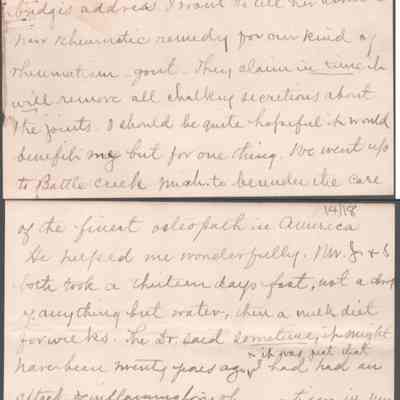 bridgis address. I want to tell her about a
new rheumatic remedy for our kind of
rheumatism - gout. They claim in time it
will remove all chalky secretions about
the joints. I should be quite hopeful it would
benefit me but for one thing. We went up
to Battle creek Mich. to be under the care
14/18
of the finest osteopath in America
He helped me wonderfully. Mr. J & I
both took a thirteen days fast, not a drop
of anything but water, then a milk diet
for weeks. The Dr. said sometime, it might
+ it was just that
have been twenty years ago, I had had an
attack of inflammation of in my